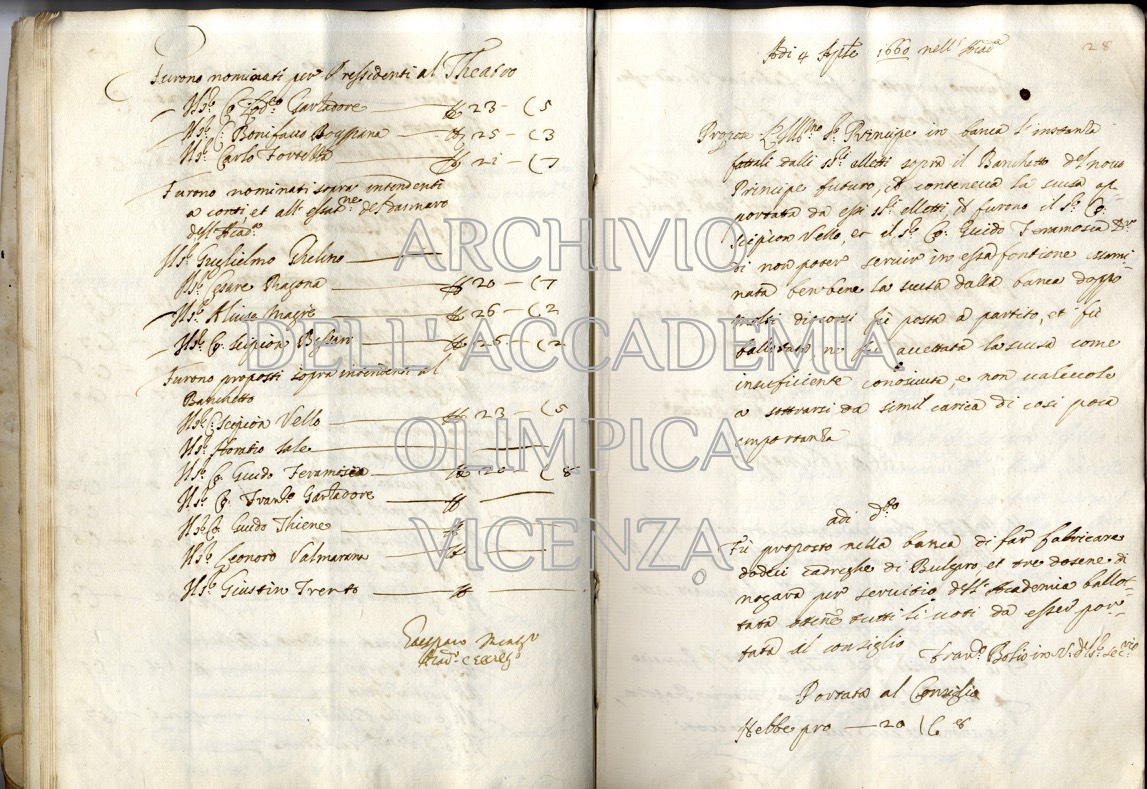 Furono nominati per Pressidenti al Theatro
Il Sr. Co. Lod.co Garzadore — pp 23 – C 5
Il Sr. Co. Bonifacio Poggiana — pp 25 – C 3
Il Sr. Carlo Tortella — pp 21 – C 7
Furono nominati sopra intendenti
a conti, et all'
dell'Acad.a
Il Sr. Guglielmo
Il Sr. Cesare Ragona — pp 20 – C 7
Il Sr. Aluise Magrè — pp 26 – C 2
Il Sr. Co. Scipion — pp 26 – C 2
Furono proposti sopra intendenti al
Banchetto
Il Sr. Co. Scipion Vello — pp 23 – C 5
Il Sr. Horatio Sale
Il Sr. Co. Guido Feramosca — pp 20 C 8
Il Sr. Co. Franc.o Garzadore — pp
Il Sr. Co. Guido Thiene — pp
Il Sr. Leonoro Valmarana — pp
Il Sr. Giustin Trento — pp
28
Adi 4 Aple 1660 nell' Acad.a
Propose L'Ill.mo Sr. Principe in banca l'instanza
fattali dalli SSri eletti sopra il Banchetto del novo
Principe futuro, conteneva la scusa ap-
portata da essi SSri elletti, furono il Sr. Co.
Scipion Vello, et il Sr. Co. Guido Feramosca
di non poter servir in essa fontione esami-
nata ben bene la scusa dalla banca doppo
molti discorsi fù posta a partito, et fù
ballotata, ne fù accettata la scusa come
insuficiente conosciuta, e non valevole
a sottrarsi da simil carica di così poca
importanza
adi d.to
Fù proposto nella banca di far fabricare
dodeci cadreghe di Bulgaro, et tre dosene di
nogara per servitio dell'Academia ballot-
tata ottene tutti li voti da esser por-
tata al consiglio
Fran.o Bosio in V. del Sr. Sec.rio
Portata al Consiglio
Hebbe pro — 20 | C 8
ARCHIVIO
DELL'ACCADEMIA
OLIMPICA
VICENZA